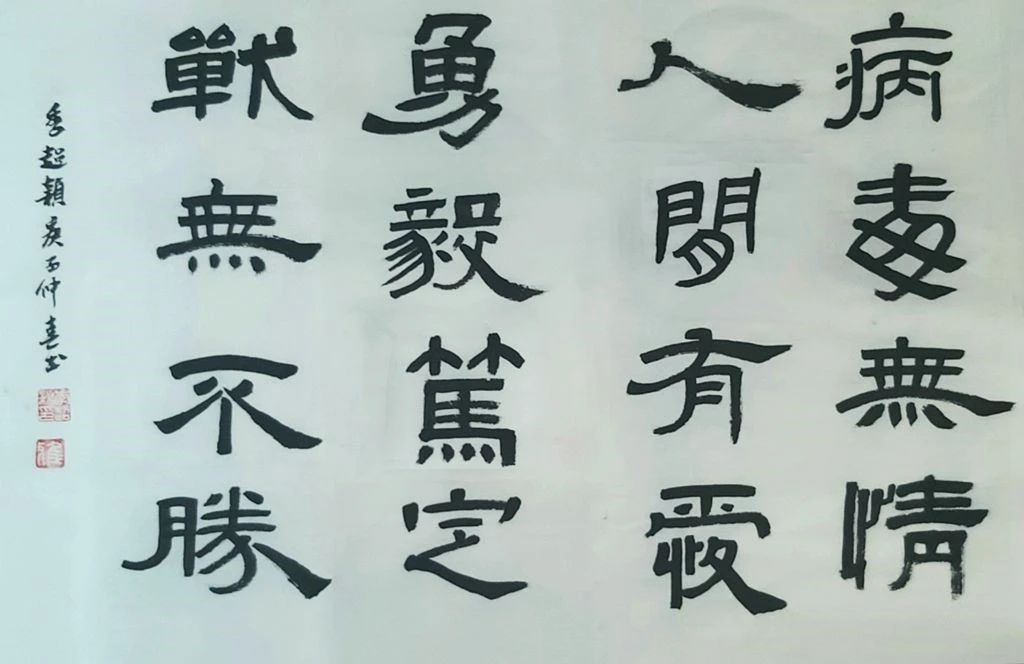 病毒無情
人間有愛
勇毅篤定
戰無不勝
季超穎庚子仲春書